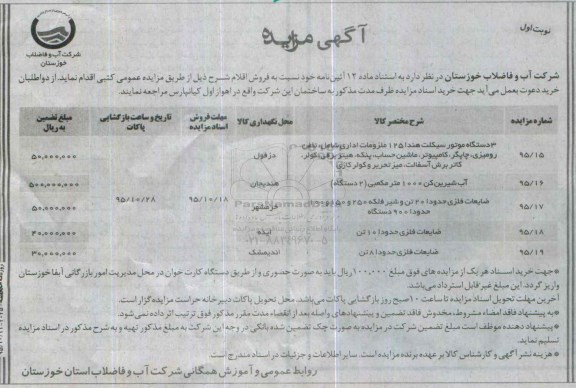 نوبت اول
آگهی مزایده
شرکت آب و فاضلاب
خوزستان
شرکت آب و فاضلاب خوزستان در نظر دارد به استناد ماده ۱۳ آئین نامه خود نسبت به فروش اقلام شرح ذیل از طریق مزایده عمومی کتبی اقدام نماید. از دواطلبان
خرید دعوت بعمل می آید جهت خرید اسناد مزایده ظرف مدت مذکور به ساختمان این شرکت واقع در اهواز اول کیانپارس مراجعه نمایند.
شماره مزایده شرح مختصر کالا محل نگهداری کالا مهلت فروش اسناد مزایده تاریخ و ساعت بازگشایی پاکات مبلغ تضمین به ریال
۹۵/۱۵ ۳ دستگاه موتور سیکلت هندا ۱۲۵ ملزومات اداری شامل، تلفن رومیزی، چاپگر، کامپیوتر، ماشین حساب، پنکه، هیتر برقی، کولر، کاتر برش آسفالت، میز تحریر و کولر گازی دزفول ۵۰,۰۰۰,۰۰۰
۹۵/۱۶ آب شیرین کن ۱۰۰۰ متر مکعبی (۲ دستگاه) هندیجان ۵۰۰,۰۰۰,۰۰۰
۹۵/۱۷ ضایعات فلزی حدودا ۲۰ تن و شیر فلکه ۲۵۰ و حدودا ۹۰۰ دستگاه خرمشهر ۹۵/۱۰/۱۸ ۹۵/۱۰/۲۸ ۵۰,۰۰۰,۰۰۰
۹۵/۱۸ ضایعات فلزی حدودا ۱۰ تن ایذه ۴۰,۰۰۰,۰۰۰
۹۵/۱۹ ضایعات فلزی حدودا ۸ تن اندیمشک ۳۰,۰۰۰,۰۰۰
۰۲۱-۸۸۳۴۹۶۷۰-۵
* جهت خرید اسناد هر یک از مزایده های فوق مبلغ ۱۰۰,۰۰۰ ریال باید به صورت حضوری و از طریق دستگاه کارت خوان در محل مدیریت امور بازرگانی آبفا خوزستان
واریز گردد. این مبلغ غیر قابل استرداد می باشد.
آخرین مهلت تحویل اسناد مزایده تا ساعت ۱۰ صبح روز بازگشایی پاکات می باشد. محل تحویل پاکات دبیرخانه حراست مزایده گزار است.
* به پیشنهاد فاقد امضاء مشروط، مخدوش فاقد تضمین و پیشنهادهای واصله بعد از انقضاء مدت مقرر مذکور فوق ترتیب اثر داده نمی شود.
* پیشنهاد دهنده موظف است مبلغ تضمین شرکت در مزایده به صورت چک تضمین شده بانکی در وجه این شرکت به مبلغ مذکور تهیه و به شرح مذکور در اسناد مزایده
تسلیم نماید
* هزینه نشر آگهی و کارشناس کالا بر عهده برنده مزایده است. سایر اطلاعات و جزئیات در اسناد مندرج است
روابط عمومی و آموزش همگانی شرکت آب و فاضلاب استان خوزستان